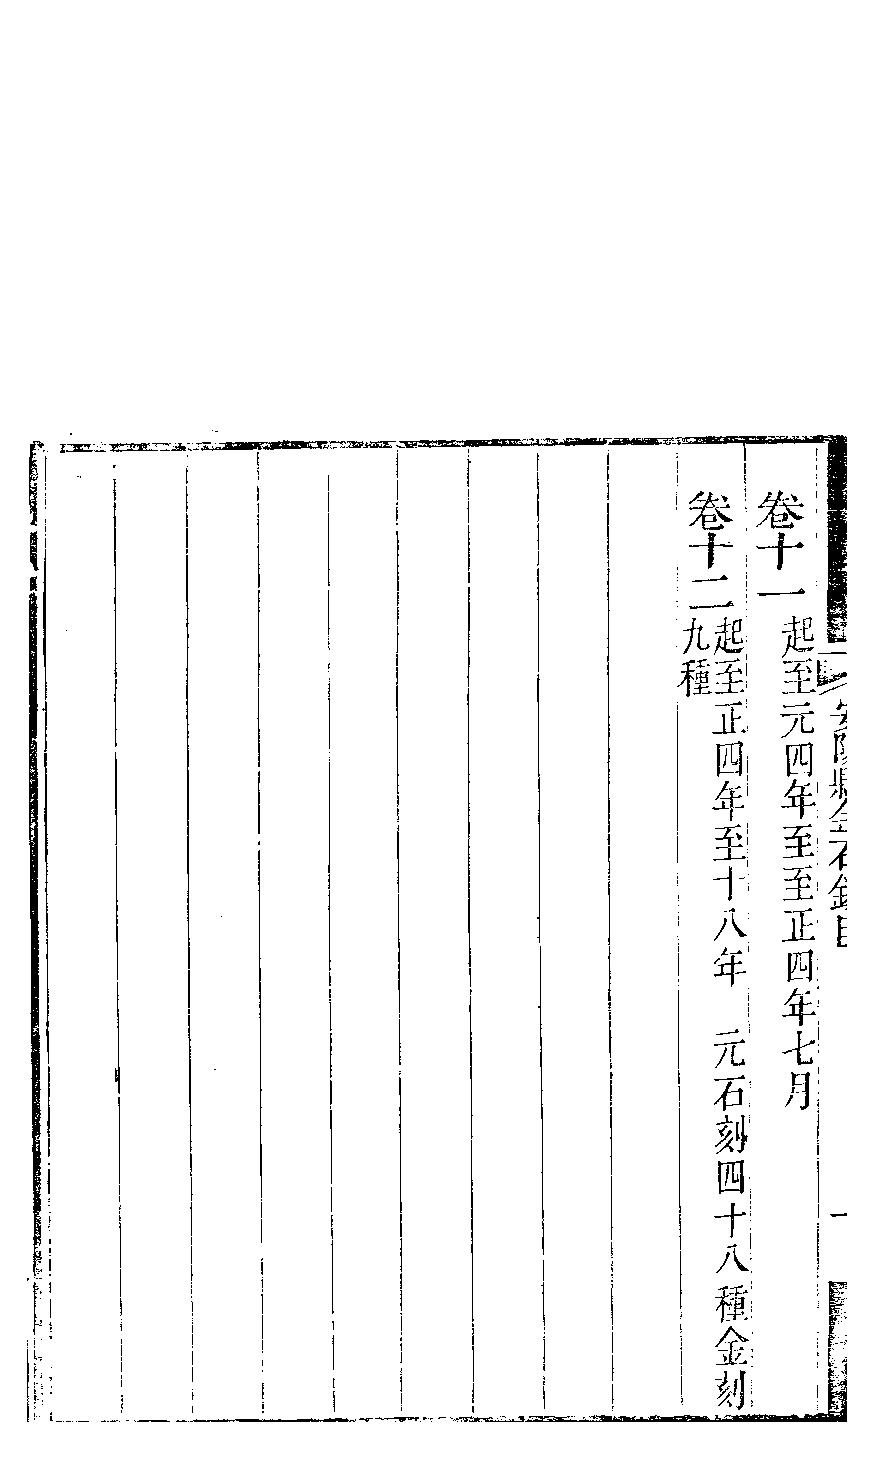 安陽縣金石錄目
一
卷十一 起至元四年至至正四年七月
卷十二 起至正四年至十八年 元石刻四十八種金刻
九種